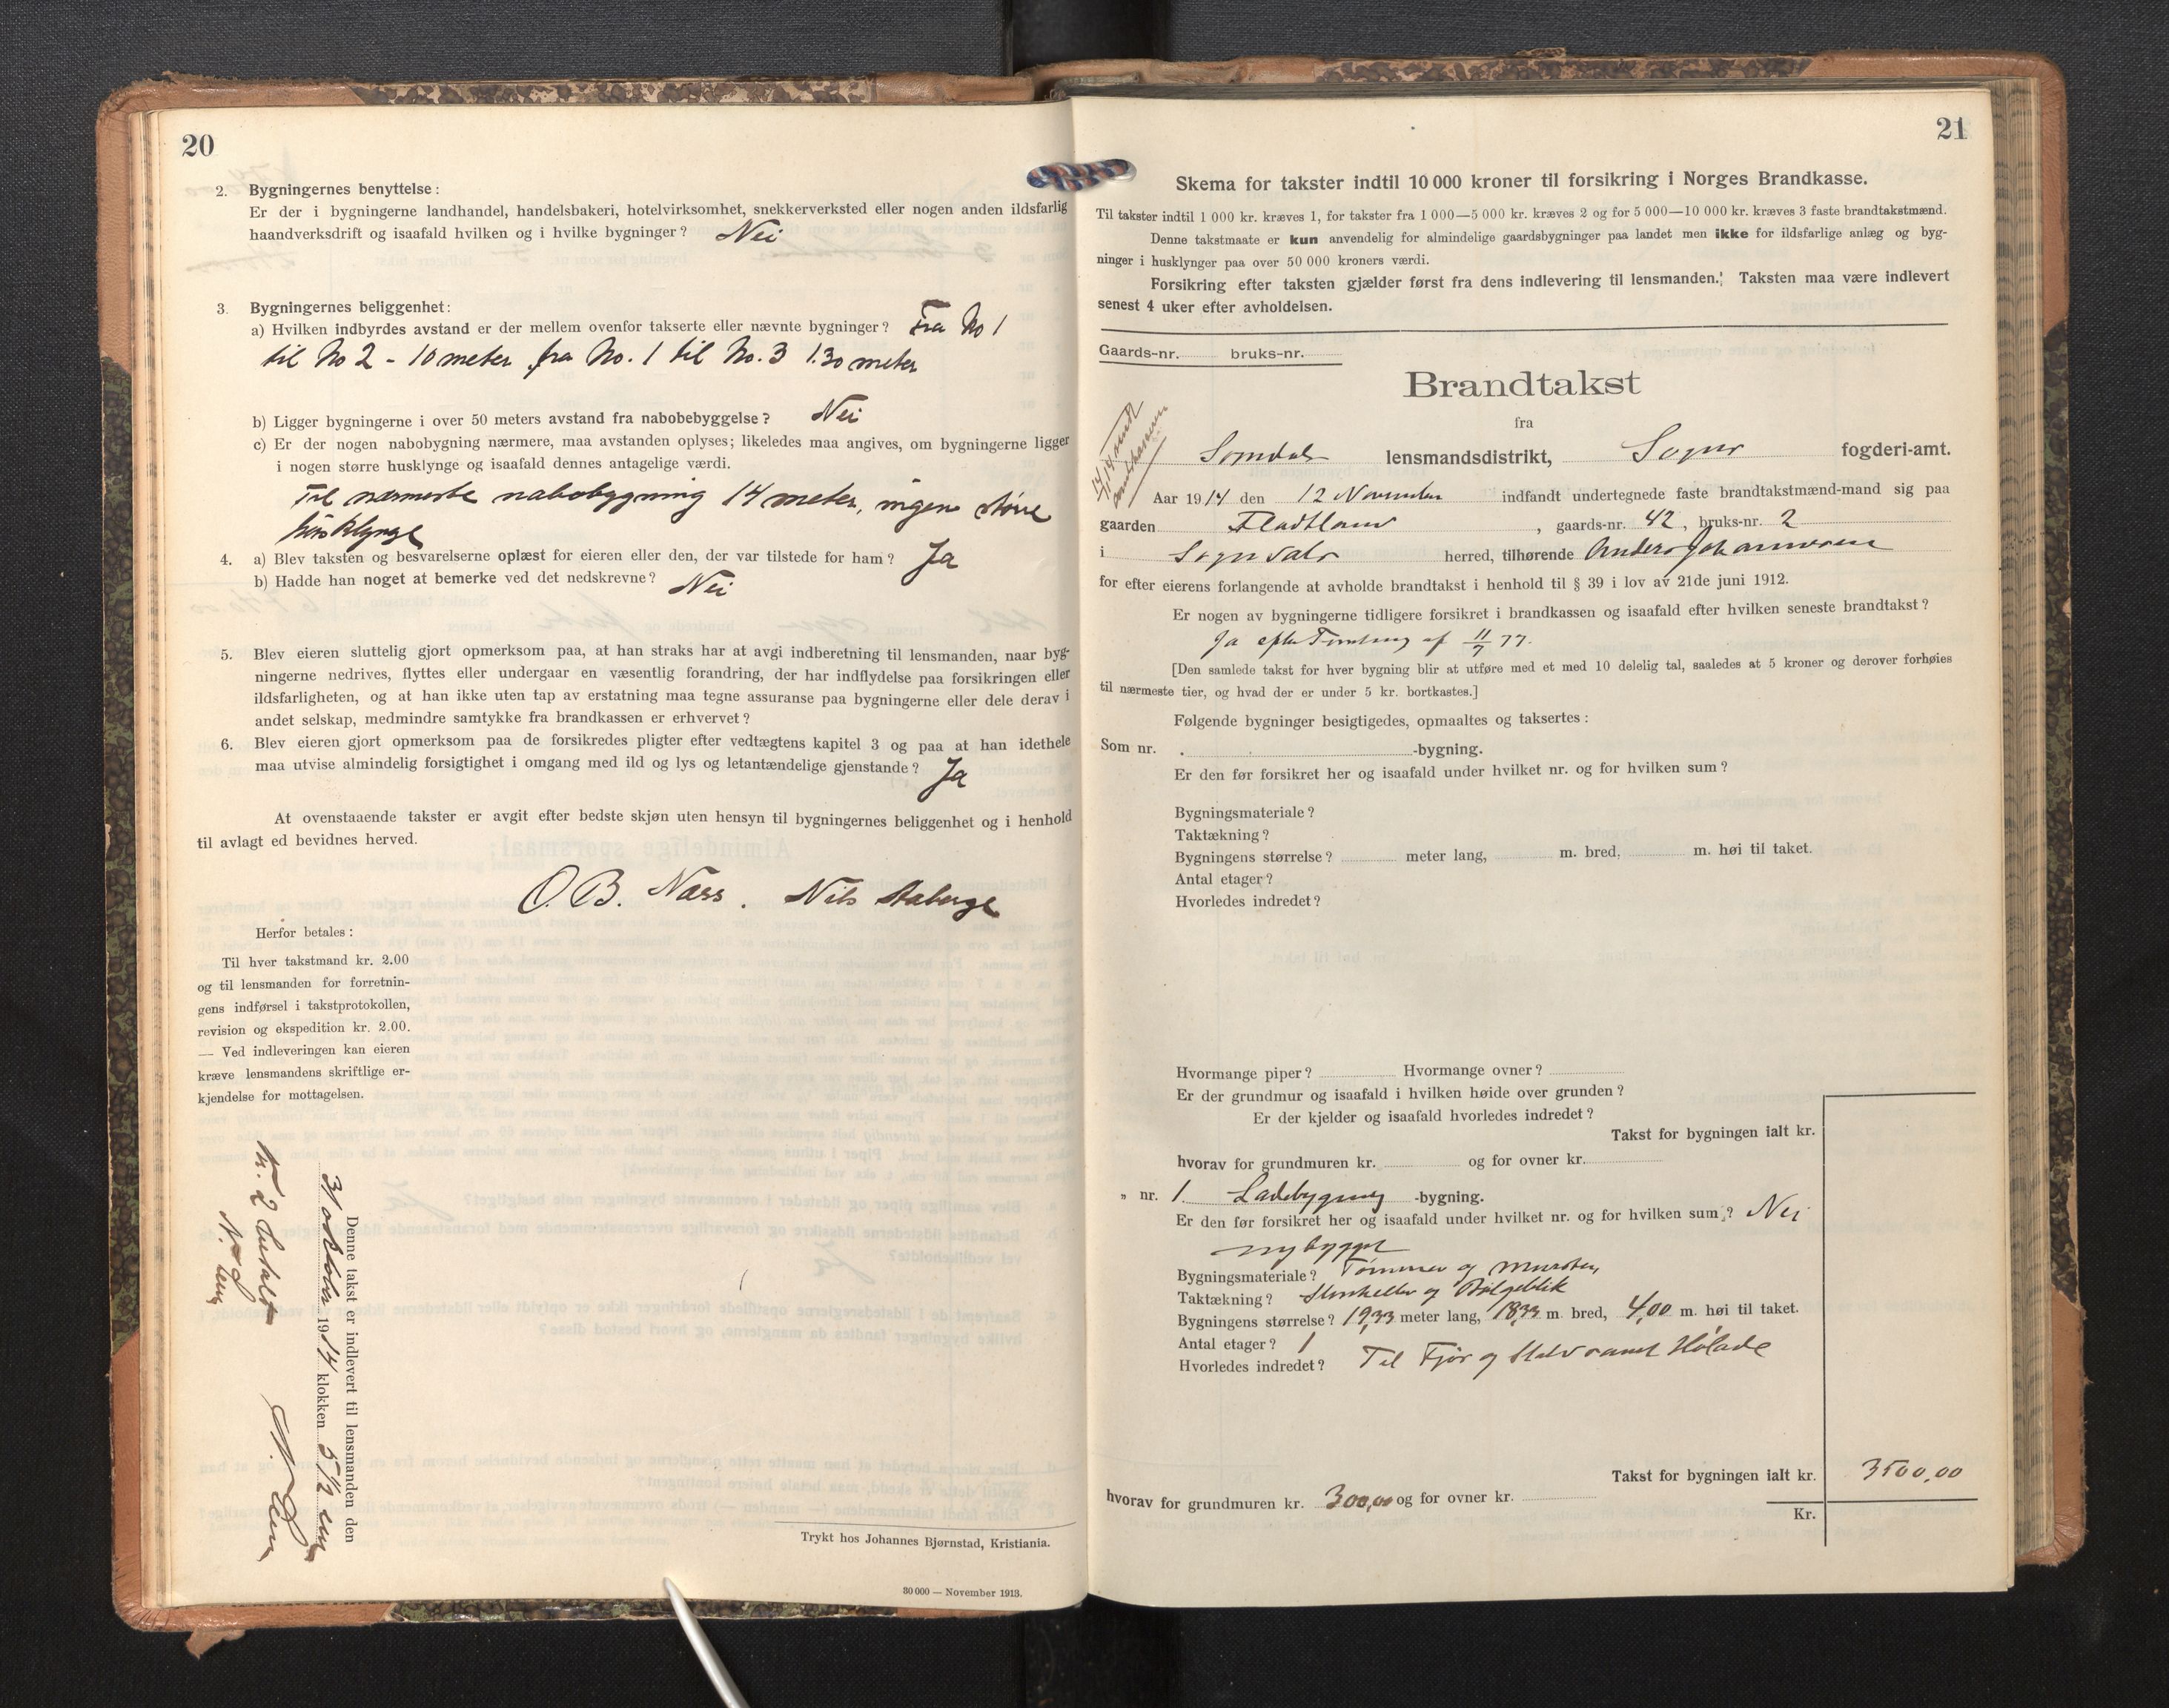 20
2. Bygningernes benyttelse:
Er der i bygningerne landhandel, handelsbakeri, hotelvirksomhet, snekkerverksted eller nogen anden ildsfarlig
haandverksdrift og isaafald hvilken og i hvilke bygninger? Nei
3. Bygningernes beliggenhet:
a) Hvilken indbyrdes avstand er der mellem ovenfor takserte eller nævnte bygninger? Fra No 1
til No 2 - 10 meter fra No. 1 til No. 3 1.30 meter
b) Ligger bygningerne i over 50 meters avstand fra nabobebyggelse? Nei
c) Er der nogen nabobygning nærmere, maa avstanden oplyses; likeledes maa angives, om bygningerne ligger
i nogen større husklynge og isaafald dennes antagelige værdi.
Til nærmeste nabobygning 14 meter, ingen större
husklynge
4. a) Blev taksten og besvarelserne oplæst for eieren eller den, der var tilstede for ham? Ja
b) Hadde han noget at bemerke ved det nedskrevne? Nei
5. Blev eieren sluttelig gjort opmerksom paa, at han straks har at avgi indberetning til lensmanden, naar byg-
ningerne nedrives, flyttes eller undergaar en væsentlig forandring, der har indflydelse paa forsikringen eller
ildsfarligheten, og at han ikke uten tap av erstatning maa tegne assuranse paa bygningerne eller dele derav i
andet selskap, medmindre samtykke fra brandkassen er erhvervet?
6. Blev eieren gjort opmerksom paa de forsikredes pligter efter vedtægtens kapitel 3 og paa at han idethele
maa utvise almindelig forsigtighet i omgang med ild og lys og letantændelige gjenstande? Ja
At ovenstaaende takster er avgit efter bedste skjøn uten hensyn til bygningernes beliggenhet og i henhold
til avlagt ed bevidnes herved.
O. B. Næss. Nils
Herfor betales:
Til hver takstmand kr. 2.00
og til lensmanden for forretnin-
gens indførsel i takstprotokollen,
revision og ekspedition kr. 2.00.
— Ved indleveringen kan eieren
kræve lensmandens skriftlige er-
kjendelse for mottagelsen.
Denne takst er indlevert til lensmanden den
31 oktober 1914 klokken 5 1/2 em
kr. 2 betalt
Trykt hos Johannes Bjørnstad, Kristiania.
30 000 — November 1913.
21
Skema for takster indtil 10 000 kroner til forsikring i Norges Brandkasse.
Til takster indtil 1 000 kr. kræves 1, for takster fra 1 000—5 000 kr. kræves 2 og for 5 000—10 000 kr. kræves 3 faste brandtakstmænd.
Denne takstmaate er kun anvendelig for almindelige gaardsbygninger paa landet men ikke for ildsfarlige anlæg og byg-
ninger i husklynger paa over 50 000 kroners værdi.
Forsikring efter taksten gjælder først fra dens indlevering til lensmanden. Taksten maa være indlevert
senest 4 uker efter avholdelsen.
Gaards-nr. bruks-nr.
Brandtakst
fra
lensmandsdistrikt, Sogns fogderi-amt.
Aar 1914 den 12 November indfandt undertegnede faste brandtakstmænd-mand sig paa
gaarden Fladtland, gaards-nr. 42, bruks-nr. 2
i Sogndals herred, tilhørende Anders Johannesen
for efter eierens forlangende at avholde brandtakst i henhold til § 39 i lov av 21de juni 1912.
Er nogen av bygningerne tidligere forsikret i brandkassen og isaafald efter hvilken seneste brandtakst?
Ja efter af 11/7 77.
[Den samlede takst for hver bygning blir at utføre med et med 10 delelig tal, saaledes at 5 kroner og derover forhøies
til nærmeste tier, og hvad der er under 5 kr. bortkastes.]
Følgende bygninger besigtigedes, opmaaltes og taksertes:
Som nr. -bygning.
Er den før forsikret her og isaafald under hvilket nr. og for hvilken sum?
Bygningsmateriale?
Taktækning?
Bygningens størrelse? meter lang, m. bred, m. høi til taket.
Antal etager?
Hvorledes indredet?
Hvormange piper? Hvormange ovner?
Er der grundmur og isaafald i hvilken høide over grunden?
Er der kjelder og isaafald hvorledes indredet?
Takst for bygningen ialt kr.
hvorav for grundmuren kr. og for ovner kr.
„ nr. 1 Ladebygning -bygning.
Er den før forsikret her og isaafald under hvilket nr. og for hvilken sum? Nei
nybygget
Bygningsmateriale? Tømmer og Mursten
Taktækning? Stenheller og Bölgeblik
Bygningens størrelse? 19,33 meter lang, 18,33 m. bred, 4,00 m. høi til taket.
Antal etager? 1
Hvorledes indredet? Til Fjös og Stald samt Hölade
Takst for bygningen ialt kr. 3500,00
hvorav for grundmuren kr. 300,00 og for ovner kr.
Kr.